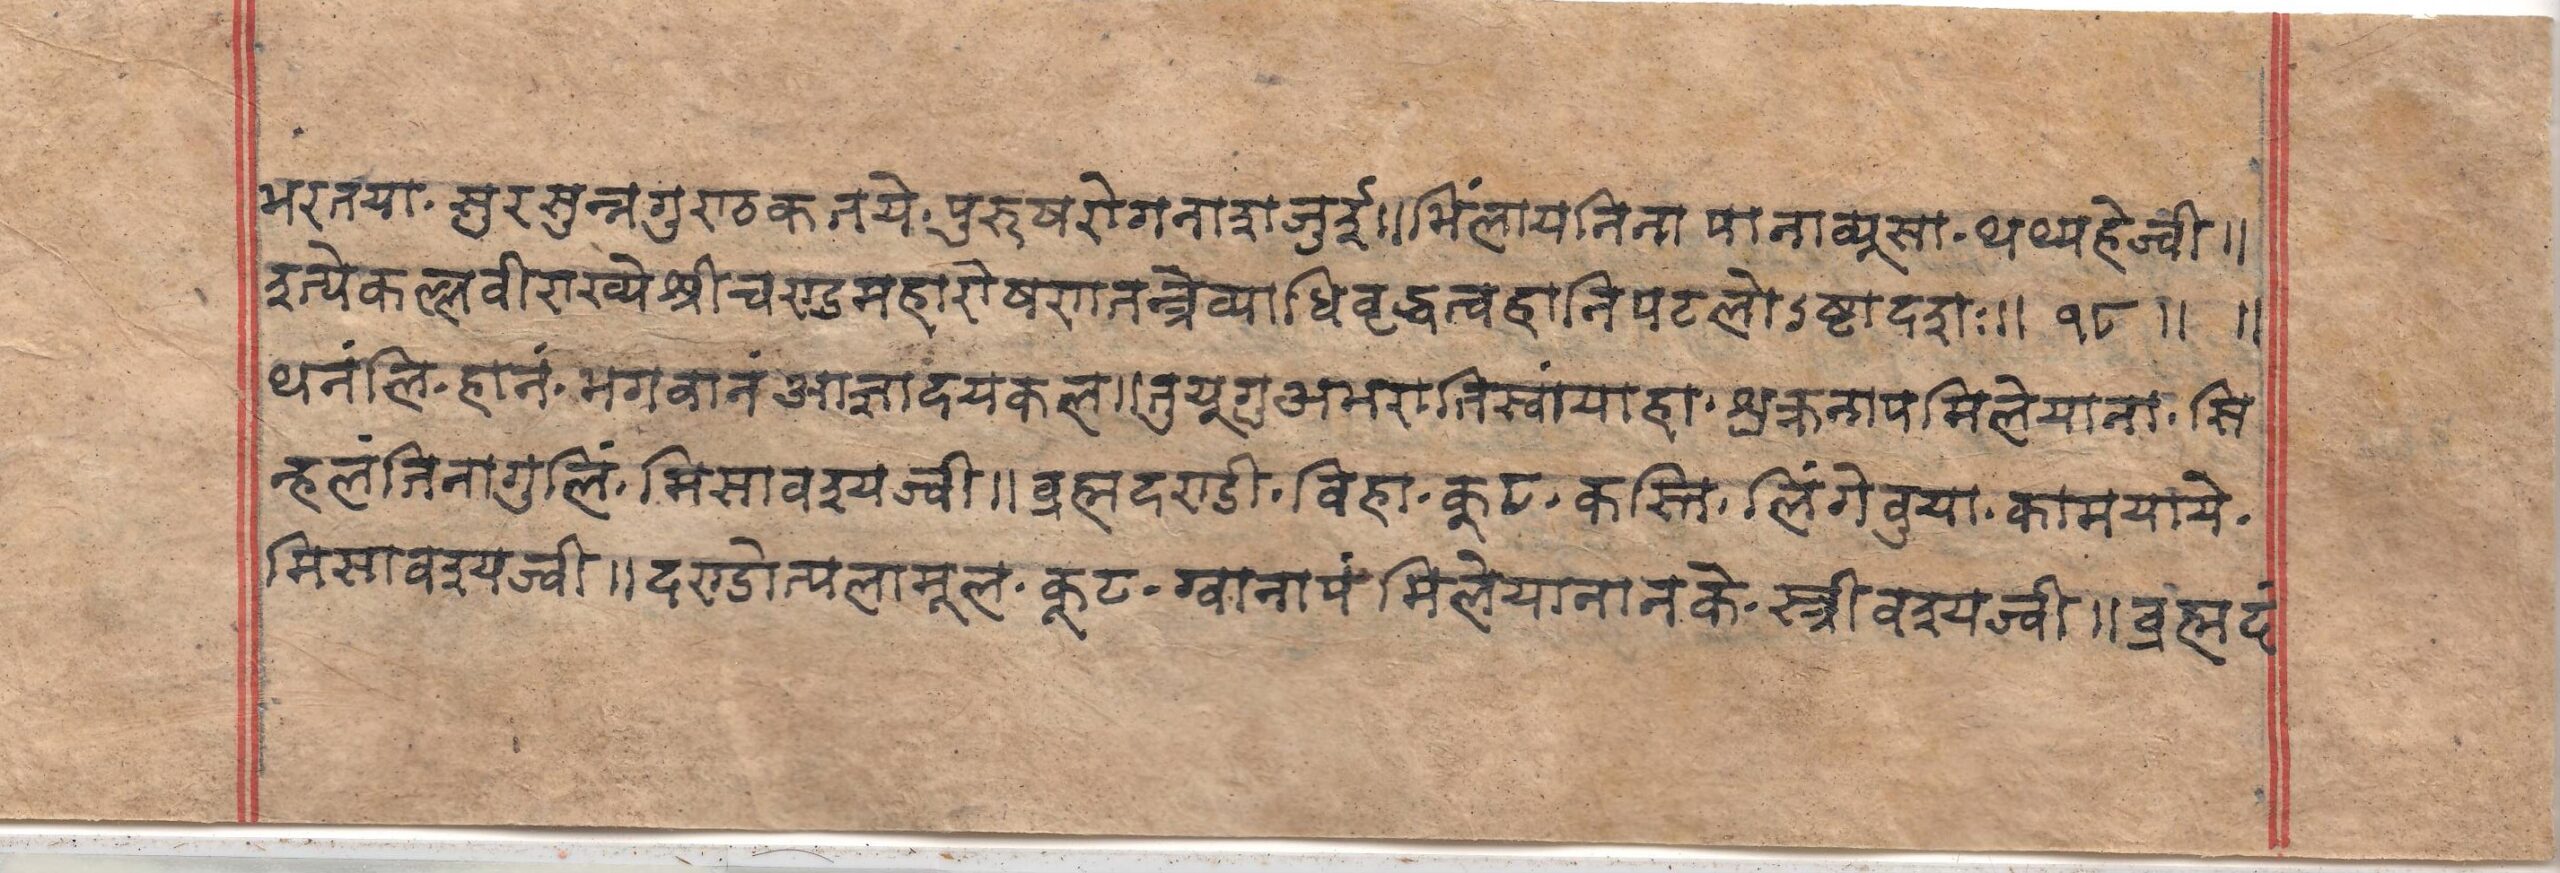 भरतया· सुरसुन्नगुराठकतये·पुरुषरोगनाशजुर्इ॥मिंलायनिना पानाव्यूसा·थथ्यहेज्वी॥
इत्येकल्लवीराख्येश्रीचण्डमहारोषणतन्त्रेव्याधिवृद्धत्वहानिपटलोऽष्टादशः॥ १८ ॥ ॥
थनंलि·हानं·भगवानंआज्ञादयकल॥तुयूगुअभरातिस्वांयाहा·श्रक्तनापमिलेयाना·सि
न्हलंतिनागुलिं·मिसावश्यज्वी॥व्रह्मदण्डी·विहा·कूट·कस्ति·लिंगेवुया·कामयाये·
मिसावश्यज्वी॥दण्डोत्पलामूल·कूट·ग्वानापं मिलेयानानके·स्त्रीवश्यज्वी॥व्रह्मदं